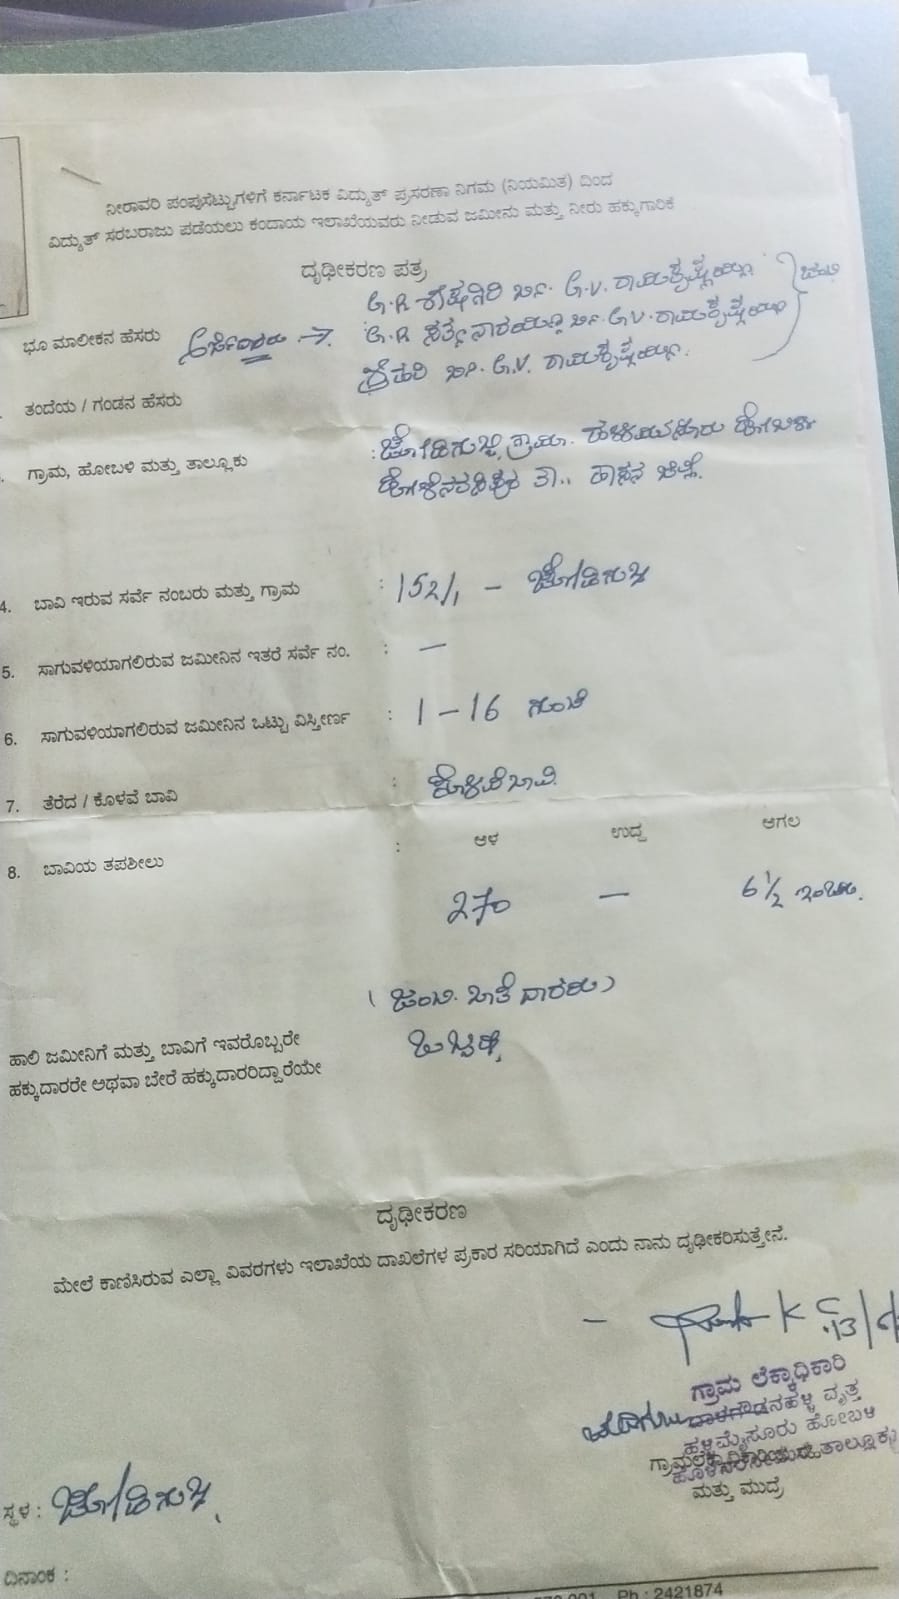 ನೀರಾವರಿ ಪಂಪುಸೆಟ್ಟುಗಳಿಗೆ ಕರ್ನಾಟಕ ವಿದ್ಯುತ್ ಪ್ರಸರಣಾ ನಿಗಮ (ನಿಯಮಿತ) ದಿಂದ
ವಿದ್ಯುತ್ ಸರಬರಾಜು ಪಡೆಯಲು ಕಂದಾಯ ಇಲಾಖೆಯವರು ನೀಡುವ ಜಮೀನು ಮತ್ತು ನೀರು ಹಕ್ಕುಗಾರಿಕೆ
ದೃಢೀಕರಣ ಪತ್ರ
G.R ಶೇಷಗಿರಿ ಬಿನ್. G.V. ರಾಮಕೃಷ್ಣಯ್ಯ
ಭೂ ಮಾಲೀಕನ ಹೆಸರು ಅರ್ಜಿದಾರರು → G.R ಸತ್ಯನಾರಾಯಣ ಬಿನ್ G.V. ರಾಮಕೃಷ್ಣಯ್ಯ ಜಂಟಿ
ಶ್ರೀಹರಿ ಬಿನ್. G.V. ರಾಮಕೃಷ್ಣಯ್ಯ.
ತಂದೆಯ / ಗಂಡನ ಹೆಸರು
ಗ್ರಾಮ, ಹೋಬಳಿ ಮತ್ತು ತಾಲ್ಲೂಕು : ಜೋಡಿಗುಬ್ಬಿ ಗ್ರಾಮ. ಹಳ್ಳಿಮೈಸೂರು ಹೋಬಳಿ
ಹೊಳೆನರಸೀಪುರ ತಾ., ಹಾಸನ ಜಿಲ್ಲೆ.
4. ಬಾವಿ ಇರುವ ಸರ್ವೆ ನಂಬರು ಮತ್ತು ಗ್ರಾಮ : 152/1 – ಜೋಡಿಗುಬ್ಬಿ
5. ಸಾಗುವಳಿಯಾಗಲಿರುವ ಜಮೀನಿನ ಇತರೆ ಸರ್ವೆ ನಂ. : —
6. ಸಾಗುವಳಿಯಾಗಲಿರುವ ಜಮೀನಿನ ಒಟ್ಟು ವಿಸ್ತೀರ್ಣ : 1 – 16 ಗುಂಟೆ
7. ತೆರೆದ / ಕೊಳವೆ ಬಾವಿ : ಕೊಳವೆ ಬಾವಿ.
8. ಬಾವಿಯ ತಪಶೀಲು : ಆಳ ಉದ್ದ ಅಗಲ
270 — 6 1/2 ಇಂಚು.
(ಜಂಟಿ ಖಾತೆದಾರರು)
ಹಾಲಿ ಜಮೀನಿಗೆ ಮತ್ತು ಬಾವಿಗೆ ಇವರೊಬ್ಬರೇ
ಹಕ್ಕುದಾರರೇ ಅಥವಾ ಬೇರೆ ಹಕ್ಕುದಾರರಿದ್ದಾರೆಯೇ
ದೃಢೀಕರಣ
ಮೇಲೆ ಕಾಣಿಸಿರುವ ಎಲ್ಲಾ ವಿವರಗಳು ಇಲಾಖೆಯ ದಾಖಲೆಗಳ ಪ್ರಕಾರ ಸರಿಯಾಗಿದೆ ಎಂದು ನಾನು ದೃಢೀಕರಿಸುತ್ತೇನೆ.
ಗ್ರಾಮ ಲೆಕ್ಕಾಧಿಕಾರಿ
ವೃತ್ತ
ಹಳ್ಳಿಮೈಸೂರು ಹೋಬಳಿ
ಮತ್ತು ಮುದ್ರೆ
ಸ್ಥಳ : ಜೋಡಿಗುಬ್ಬಿ
ದಿನಾಂಕ :
Ph : 2421874